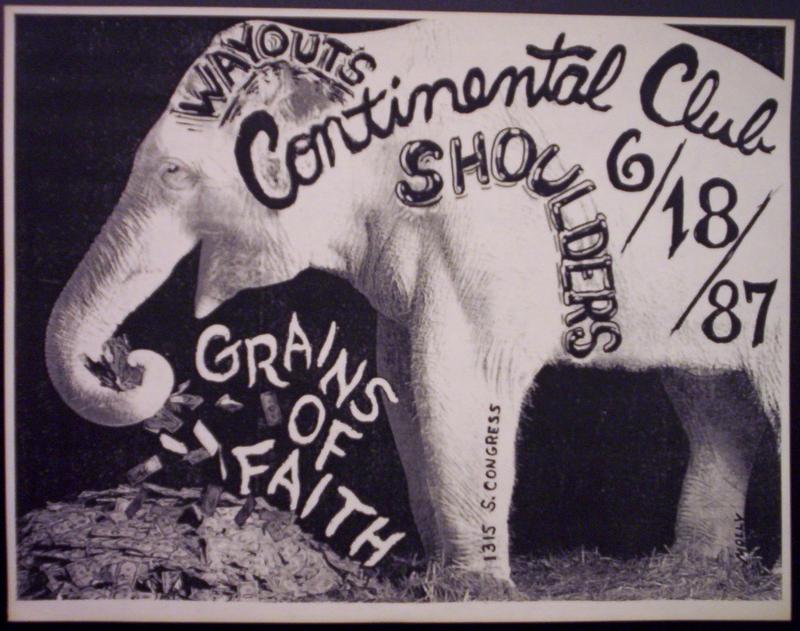 WAYOUTS
Continental Club
SHOULDERS
6/18/87
GRAINS
OF
FAITH
1315 S. CONGRESS
MOLLY